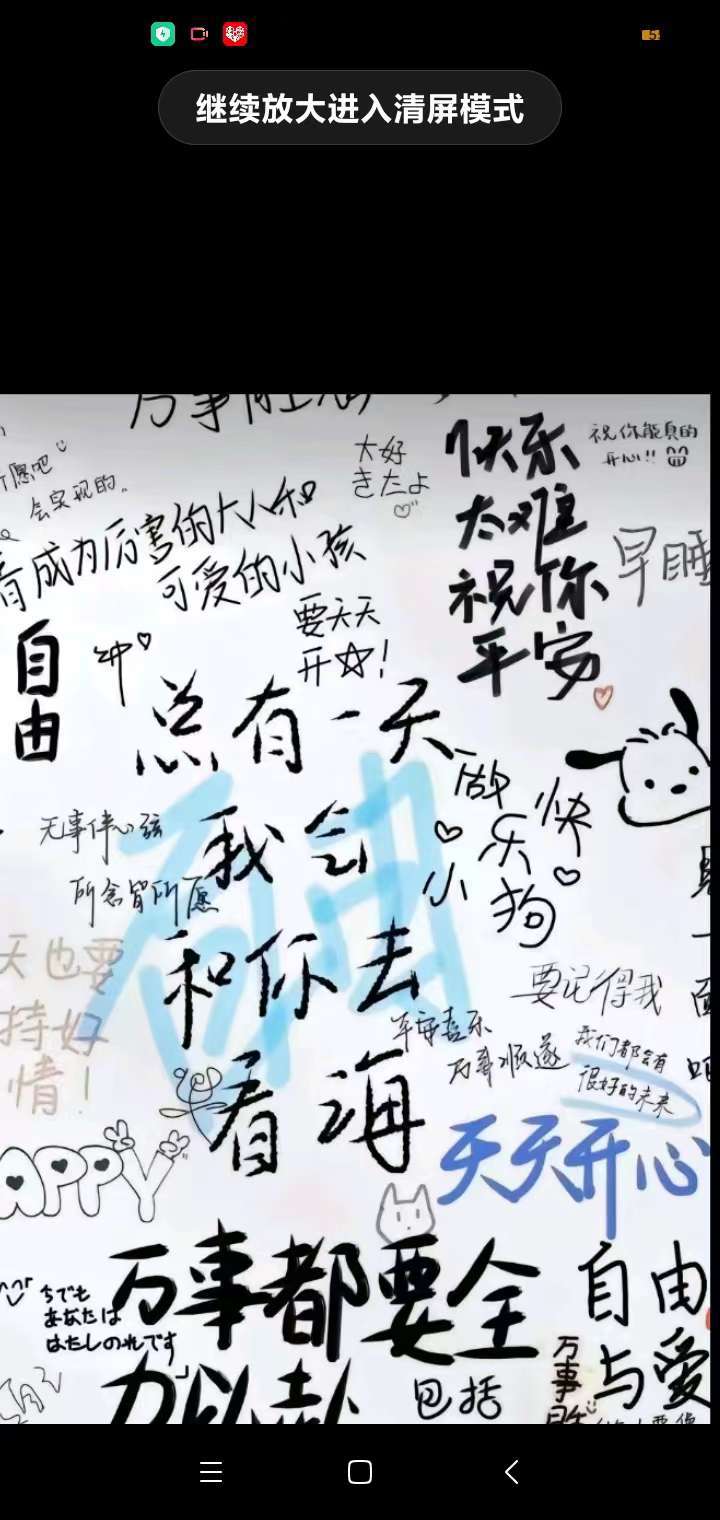 继续放大进入清屏模式
大好
きたよ
快乐
太难
祝你
平安
祝你能真的
开心!!
愿吧
会实现的。
成为厉害的大人和
可爱的小孩
早睡
要天天
开☆!
自由
总有一天
我会
和你去
看海
做
快
乐
小狗
无事伴心弦
所念皆所愿
自由
天也要
持好
情!
要记得我
平安喜乐
万事顺遂
我们都会有
很好的未来
APPY
天天开心
万事都要全
力以赴
包括
自由
与爱
ちでも
あなたは
万事